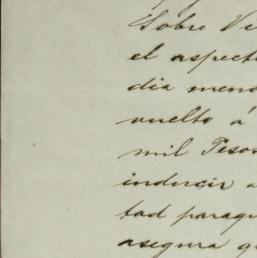 Sobre Ve
el aspect
dia mens
vuelto á
mil Pesos
inducir a
tad paragu
asegura q